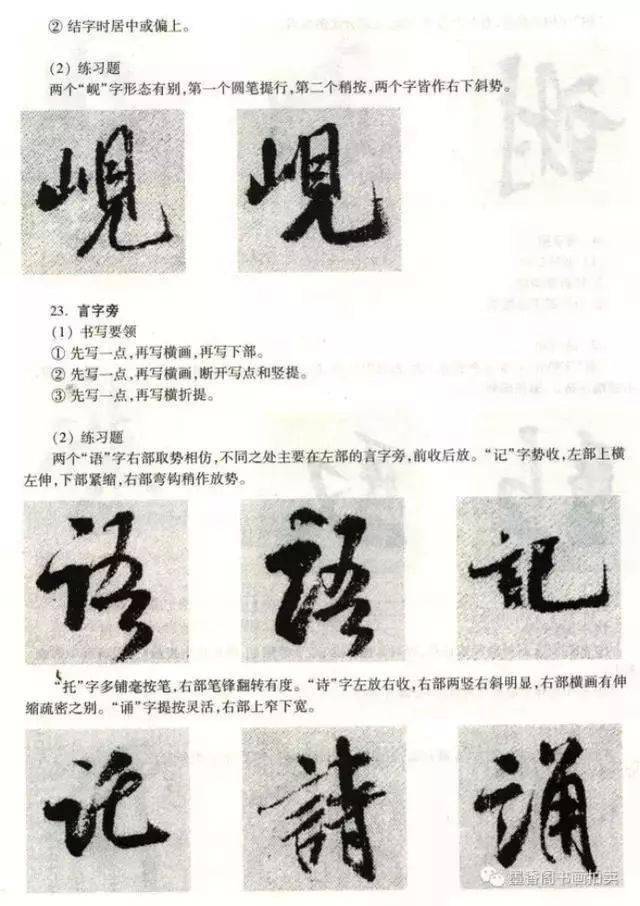 ② 结字时居中或偏上。
(2) 练习题
两个“岘”字形态有别,第一个圆笔提行,第二个稍按,两个字皆作右下斜势。
峴 峴
23. 言字旁
(1) 书写要领
① 先写一点,再写横画,再写下部。
② 先写一点,再写横画,断开写点和竖提。
③ 先写一点,再写横折提。
(2) 练习题
两个“语”字右部取势相仿,不同之处主要在左部的言字旁,前收后放。“记”字势收,左部上横
左伸,下部紧缩,右部弯钩稍作放势。
語 語 記
“托”字多铺毫按笔,右部笔锋翻转有度。“诗”字左放右收,右部两竖右斜明显,右部横画有伸
缩疏密之别。“诵”字提按灵活,右部上窄下宽。
託 詩 誦
墨香阁书画拍卖